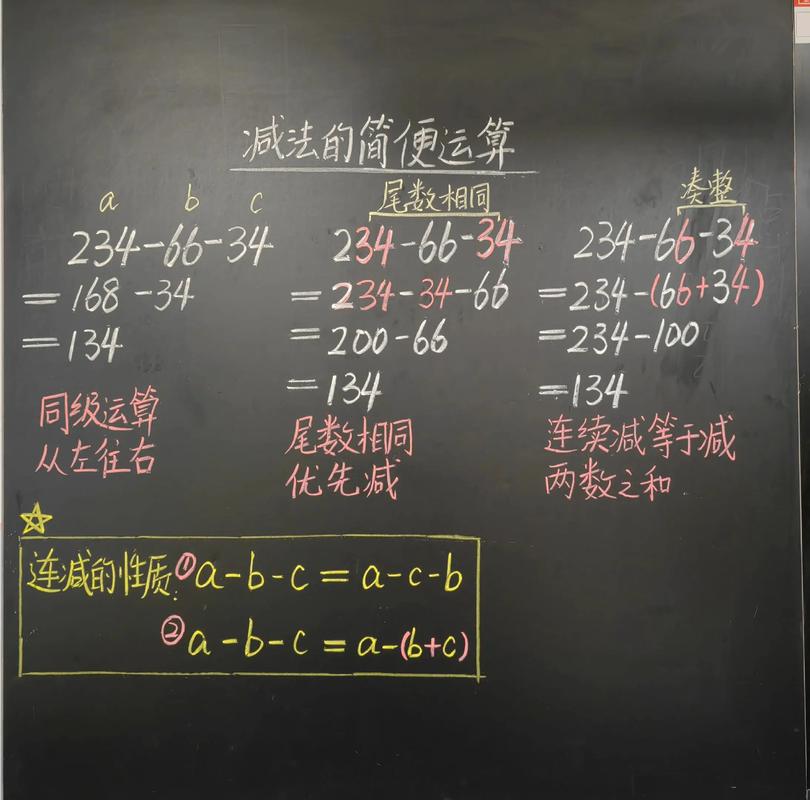 减法的简便运算
a b c
234-66-34
=168-34
=134
同级运算
从左往右
尾数相同
234-66-34
=234-34-66
=200-66
=134
尾数相同
优先减
凑整
234-66-34
=234-(66+34)
=234-100
=134
连续减等于减
两数之和
☆
连减的性质:①a-b-c=a-c-b
②a-b-c=a-(b+c)